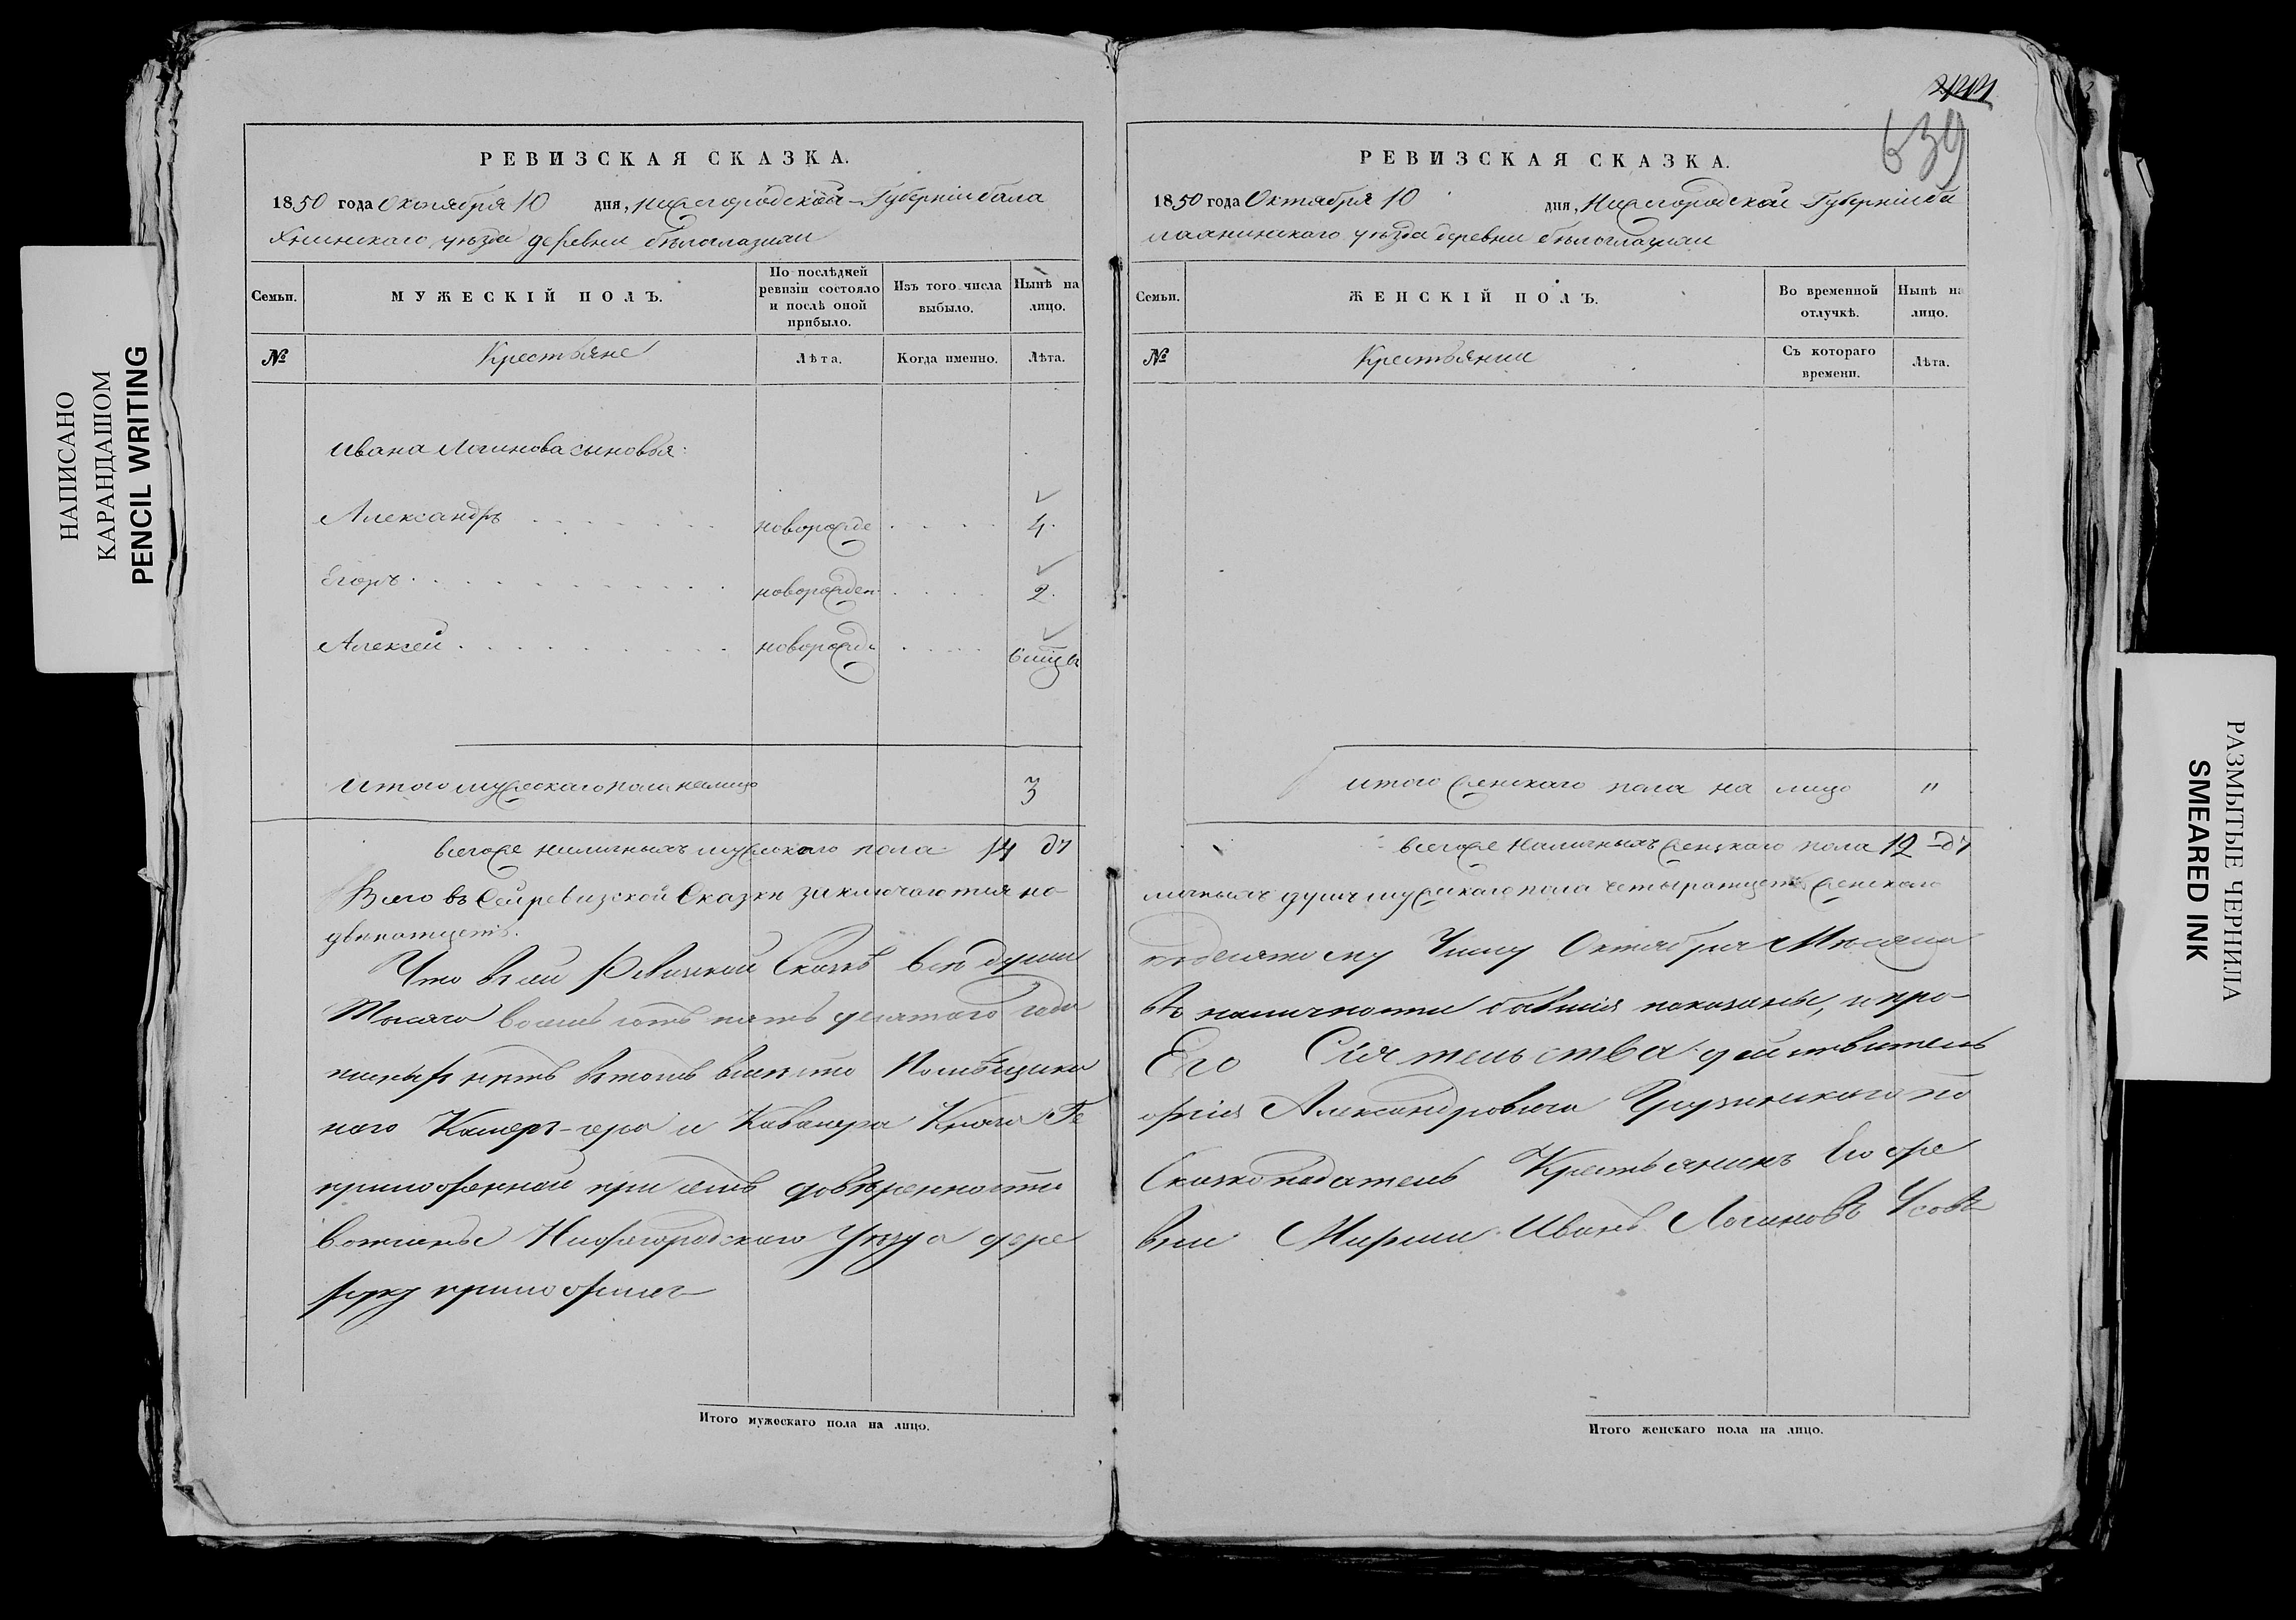 НАПИСАНО
КАРАНДАШОМ
PENCIL WRITING
РЕВИЗСКАЯ СКАЗКА.
1850 года Октября 10 дня, Нижегородской Губерніи Бала
хнинскаго уѣзда деревни бѣлоглазихи
Семьи.
МУЖЕСКІЙ ПОЛЪ.
По послѣдней ревизіи состояло и послѣ оной прибыло.
Изъ того числа выбыло.
Нынѣ на лицо.
№
Крестьяне
Лѣта.
Когда именно.
Лѣта.
Ивана Логинова сыновья:
Александръ новорожде 4.
Егоръ новорожден 2.
Алексей новорожде
Итого мужескаго пола налицо 3
всегоже наличныхъ мужскаго пола 14
Всего въ Сей ревизской Сказкѣ заключаются на-
двѣнатцеть.
Что в сей Ревизкой Сказкѣ всѣ души
Тысяча восемь сотъ пять десятаго года
писныхъ нѣтъ втомъ вместо Помѣщика
наго Камергера и Кавалера Князя Ге
приложенной при семъ довѣренности
вотчины Нижегородскаго Уѣзда дере
руку приложилъ
Итого мужескаго пола на лицо.
639
РЕВИЗСКАЯ СКАЗКА.
1850 года Октября 10 дня, Нижегородской Губерніи ба
лахнинскаго уѣзда деревни бѣлоглазихи
Семьи.
ЖЕНСКІЙ ПОЛЪ.
Во временной отлучкѣ.
Нынѣ на лицо.
№
Крестьянки
Съ котораго времени.
Лѣта.
итого женскаго пола на лицо "
всегоже наличныхъ женскаго пола 12
личныхъ душъ мужскаго пола четырнатцеть женскаго
подесятому Числу Октября Мѣсяца
въ наличности бывшія показаны, и про-
Его Сіятельства действитель
оргія Александровича Грузинскаго по
Сказкоподатель Крестьянинъ Егоже
вни Иванъ Логиновъ Усовъ
Итого женскаго пола на лицо.
РАЗМЫТЫЕ ЧЕРНИЛА
SMEARED INK